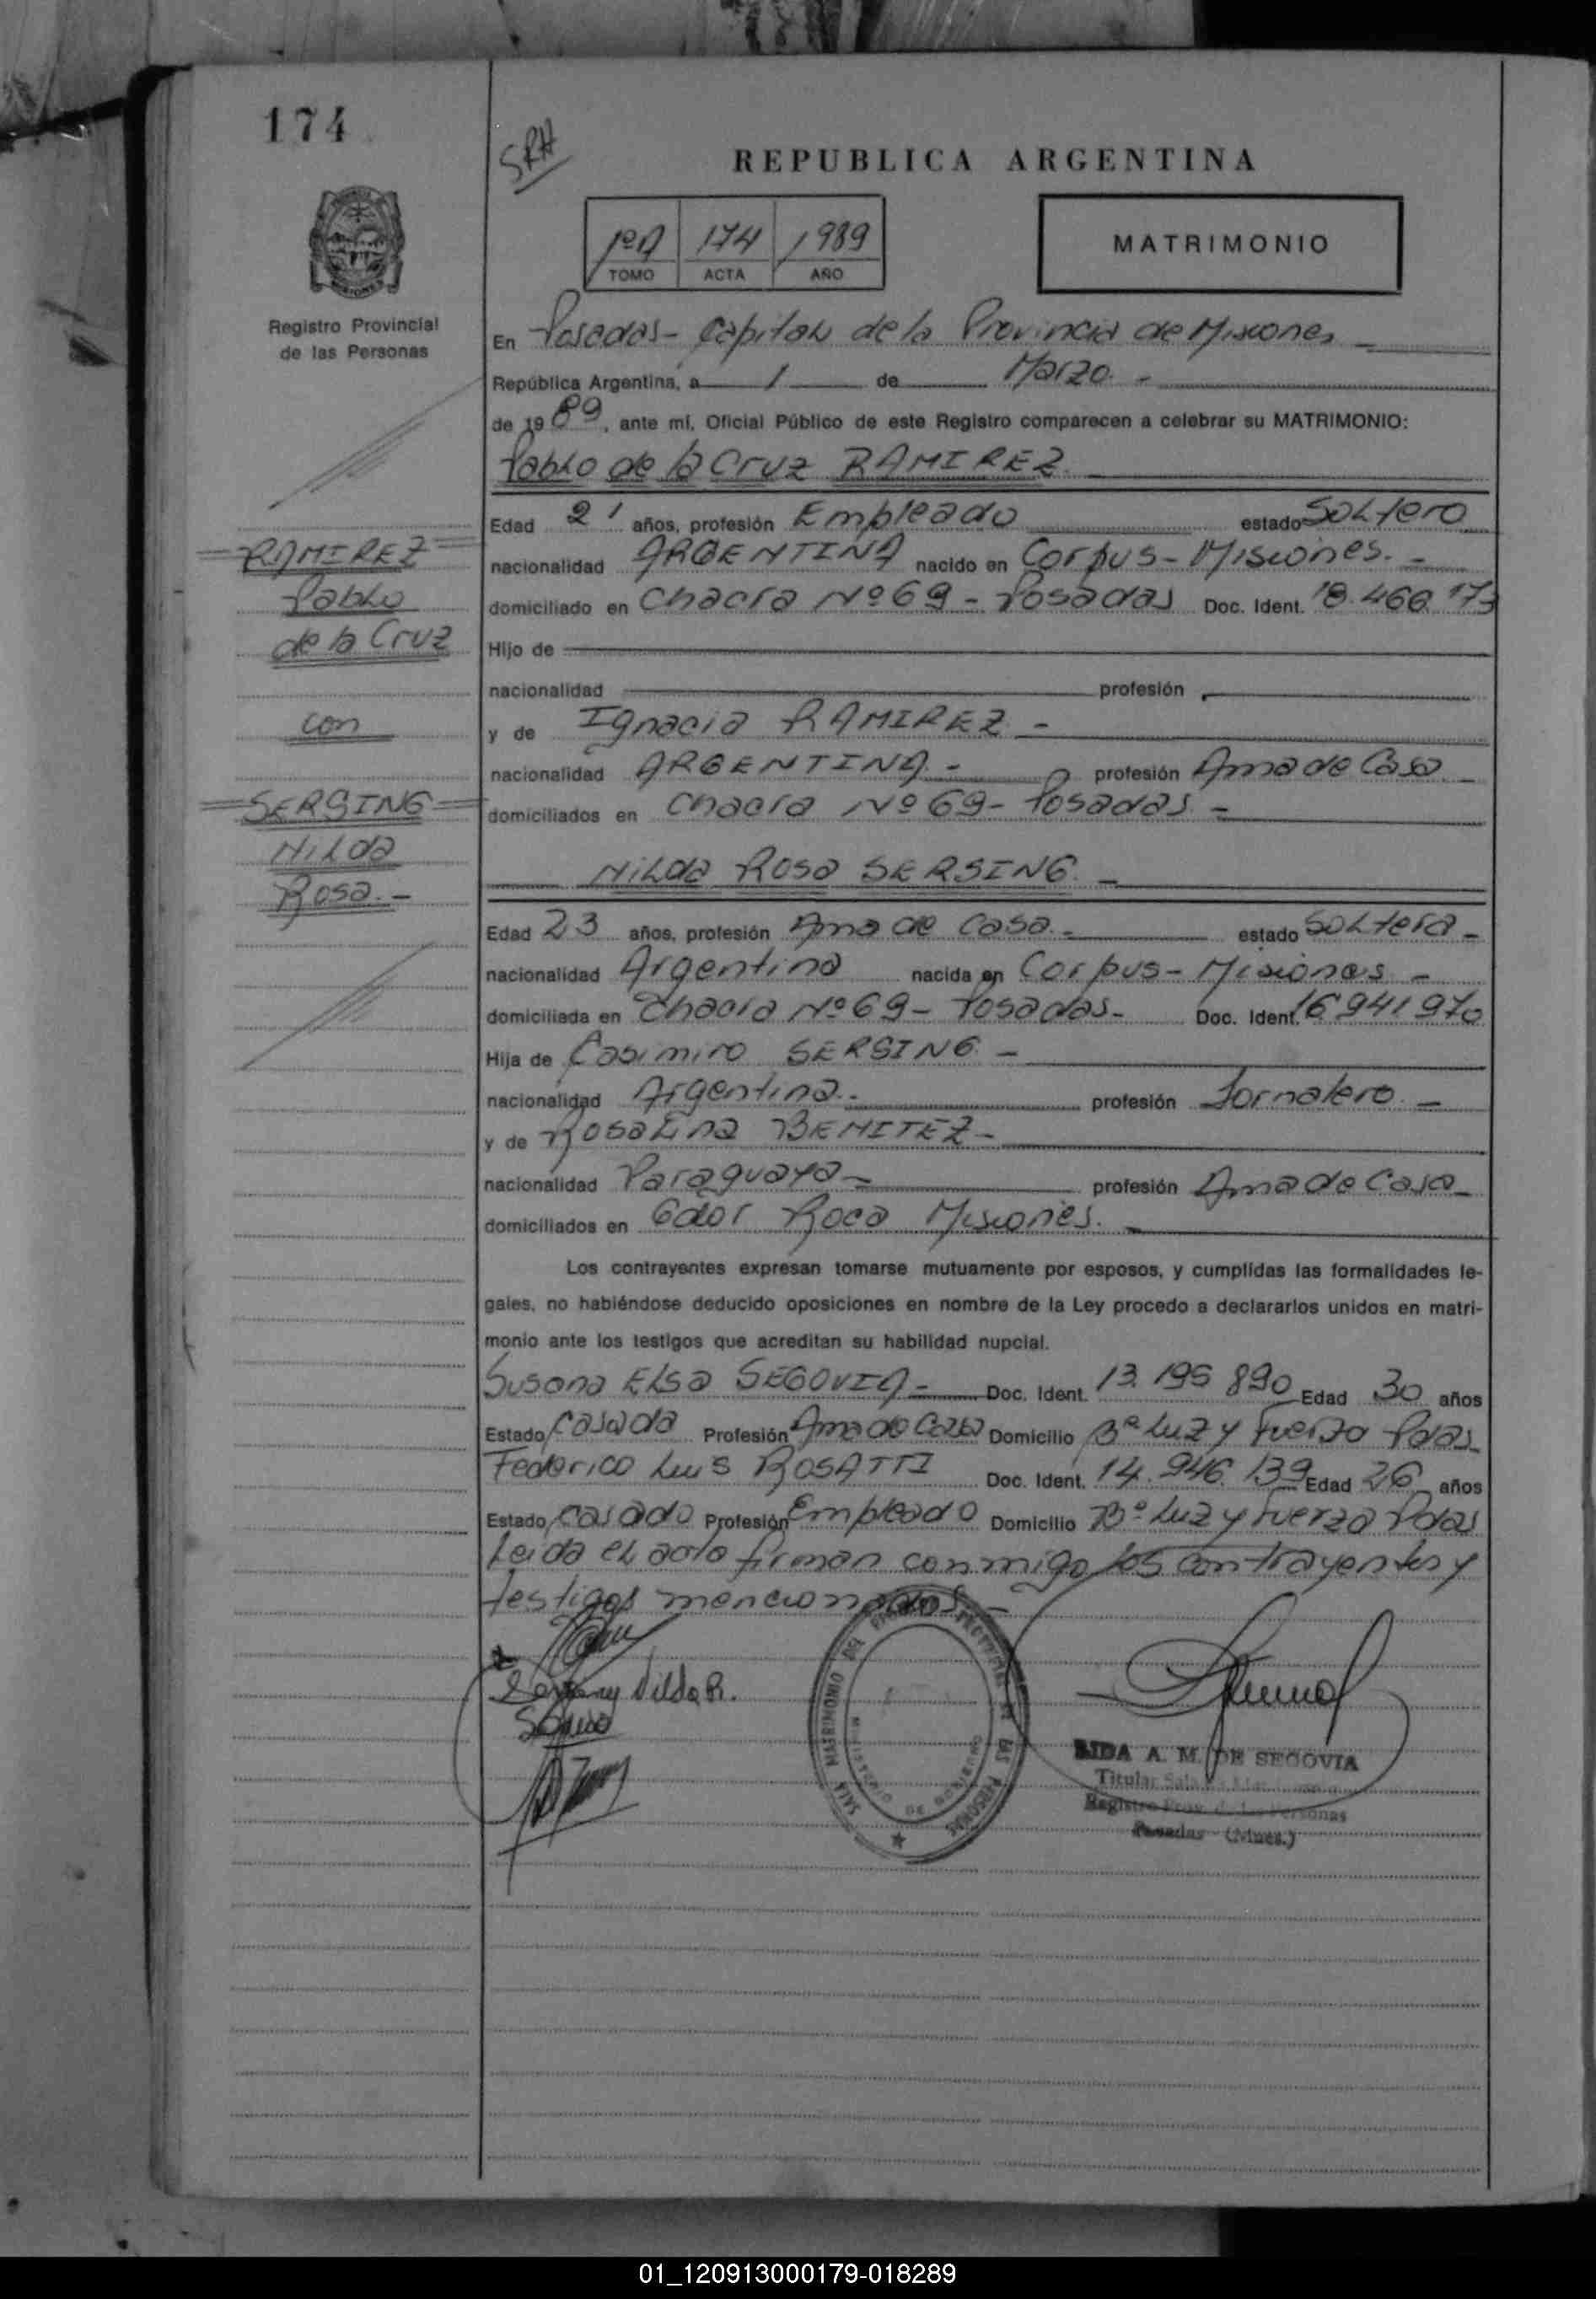 174
SRH
REPUBLICA ARGENTINA
1ºA 174 1989
TOMO ACTA AÑO
MATRIMONIO
Registro Provincial
de las Personas
En Posadas - Capital de la Provincia de Misiones -
República Argentina, a 1 de Marzo. -
de 1989, ante mí, Oficial Público de este Registro comparecen a celebrar su MATRIMONIO:
Pablo de la Cruz RAMIREZ.
Edad 21 años, profesión Empleado estado Soltero
nacionalidad ARGENTINA nacido en Corpus - Misiones. -
domiciliado en Chacra Nº 69 - Posadas Doc. Ident. 18.466.173
Hijo de
nacionalidad profesión
y de Ignacia RAMIREZ -
nacionalidad ARGENTINA. - profesión Ama de Casa
domiciliados en Chacra Nº 69 - Posadas -
RAMIREZ
Pablo
de la Cruz
con
SERSING
Nilda
Rosa. -
Nilda Rosa SERSING. -
Edad 23 años, profesión Ama de Casa. - estado Soltera -
nacionalidad Argentina nacida en Corpus - Misiones -
domiciliada en Chacra Nº 69 - Posadas - Doc. Ident. 16 941 970
Hija de Casimiro SERSING -
nacionalidad Argentina. - profesión Jornalero. -
y de Rosalina BENITEZ -
nacionalidad Paraguaya - profesión Ama de Casa
domiciliados en Gdor Roca Misiones. -
Los contrayentes expresan tomarse mutuamente por esposos, y cumplidas las formalidades le-
gales, no habiéndose deducido oposiciones en nombre de la Ley procedo a declararlos unidos en matri-
monio ante los testigos que acreditan su habilidad nupcial.
Susana Elsa SEGOVIA - Doc. Ident. 13.195 890 Edad 30 años
Estado Casada Profesión Ama de Casa Domicilio Bº Luz y Fuerza Pdas
Federico Luis ROSATTI Doc. Ident. 14.946.139 Edad 26 años
Estado Casado Profesión Empleado Domicilio Bº Luz y Fuerza Pdas
Leida el acta firman conmigo los contrayentes y
testigos mencionados. -
Nilda R.
SALA MATRIMONIO DEL REGISTRO PROVINCIAL DE LAS PERSONAS
MINISTERIO DE GOBIERNO
A. M. DE SEGOVIA
Titular Sala
Registro Prov. de las Personas
Posadas - (Mnes.)
01_120913000179-018289